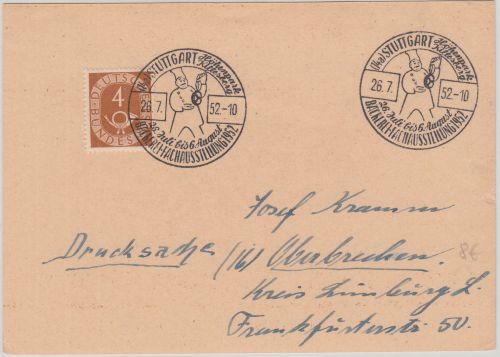 DEUTSCHE
BUNDESPOST
4
(14a) STUTTGART
Höhenpark
Killesberg
26.7.
52.-10
26. Juli bis 6. August
BÄCKEREI-FACHAUSSTELLUNG 1952
(14a) STUTTGART
Höhenpark
Killesberg
26.7.
52.-10
26. Juli bis 6. August
BÄCKEREI-FACHAUSSTELLUNG 1952
Josef Kramm
Drucksache (16) Oberbrechen.
8€
Kreis Limburg L.
Frankfurterstr. 50.